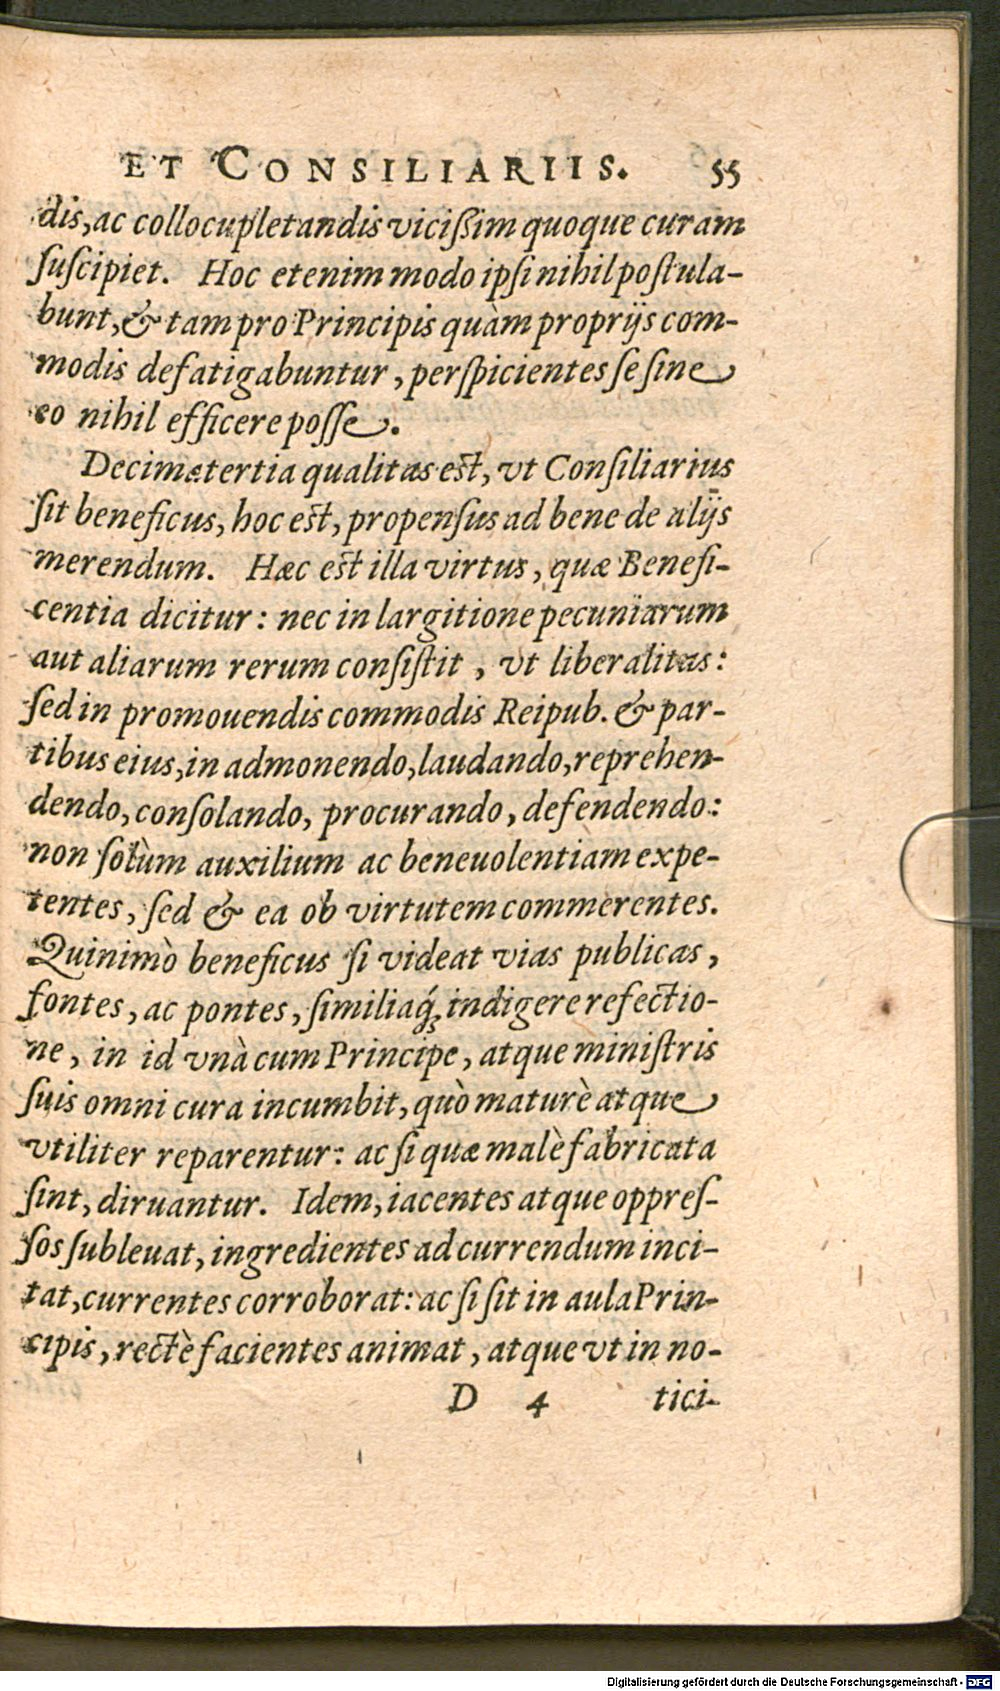 ET CONSILIARIIS. 55
dis, ac collocupletandis vicißim quoque curam
ſuſcipiet. Hoc etenim modo ipſi nihil poſtula-
bunt, & tam pro Principis quàm proprijs com-
modis defatigabuntur, perſpicientes ſe ſine
eo nihil efficere poſſe.
Decimatertia qualitas est, vt Conſiliarius
ſit beneficus, hoc est, propenſus ad bene de alijs
merendum. Hæc est illa virtus, quæ Benefi-
centia dicitur: nec in largitione pecuniarum
aut aliarum rerum conſiſtit, vt liberalitas:
ſed in promouendis commodis Reipub. & par-
tibus eius, in admonendo, laudando, reprehen-
dendo, conſolando, procurando, defendendo:
non ſolùm auxilium ac beneuolentiam expe-
tentes, ſed & ea ob virtutem commerentes.
Quinimò beneficus ſi videat vias publicas,
fontes, ac pontes, ſimiliaq́; indigere refectio-
ne, in id vnà cum Principe, atque miniſtris
ſuis omni cura incumbit, quò maturè atque
vtiliter reparentur: ac ſi quæ malè fabricata
ſint, diruantur. Idem, iacentes atque oppreſ-
ſos ſubleuat, ingredientes ad currendum inci-
tat, currentes corroborat: ac ſi ſit in aula Prin-
cipis, rectè facientes animat, atque vt in no-
D 4 tici-
Digitalisierung gefördert durch die Deutsche Forschungsgemeinschaft - DFG